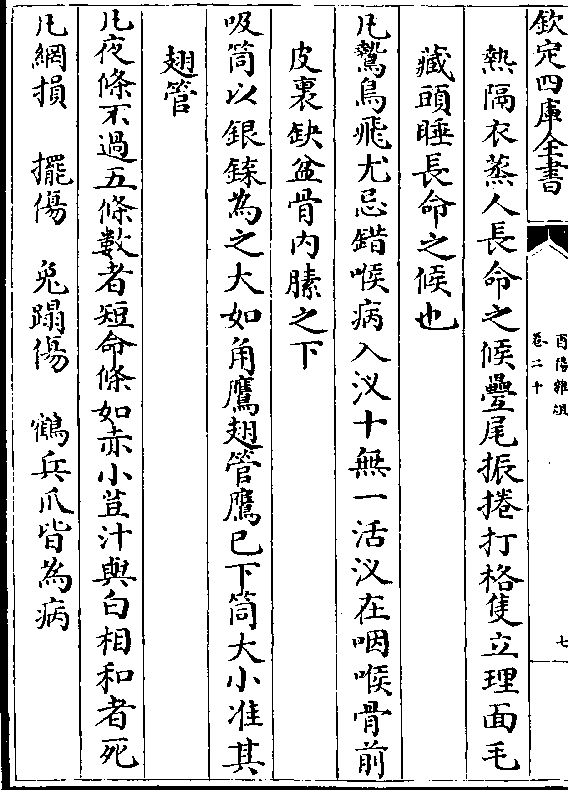 欽定四庫全書
酉陽雜俎
卷二十
七
熱隔衣蒸人長命之候疊尾振捲打格隻立理面毛
藏頭睡長命之候也
凡鷙鳥飛尤忌錯喉病入汊十無一活汊在咽喉骨前
皮裏缺盆骨内膆之下
吸筒以銀鍱為之大如角鷹翅管鷹已下筒大小准其
翅管
凡夜條不過五條數者短命條如赤小荳汁與白相和者死
凡網損　擺傷　兎蹋傷　鶴兵爪皆為病